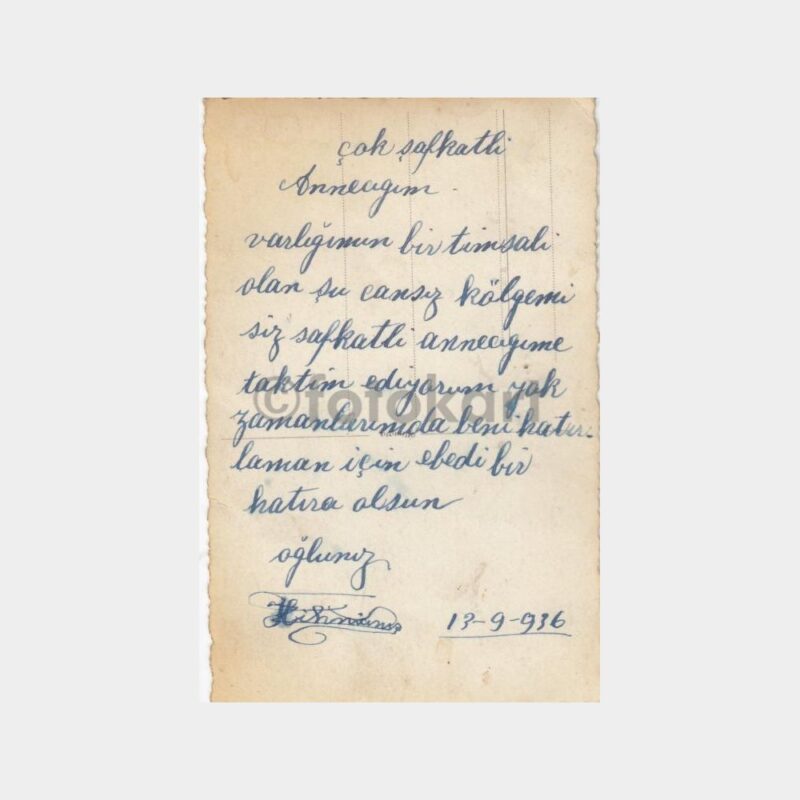 çok şafkatli
Annecıgım.
varlığımın bir timsali
olan şu cansız kölgemi
siz safkatli annecıgıme
taktim ediyorum yok
zamanlarımda beni hatır
laman için ebedi bir
hatıra olsun
oğlunuz
13-9-936
©fotokart